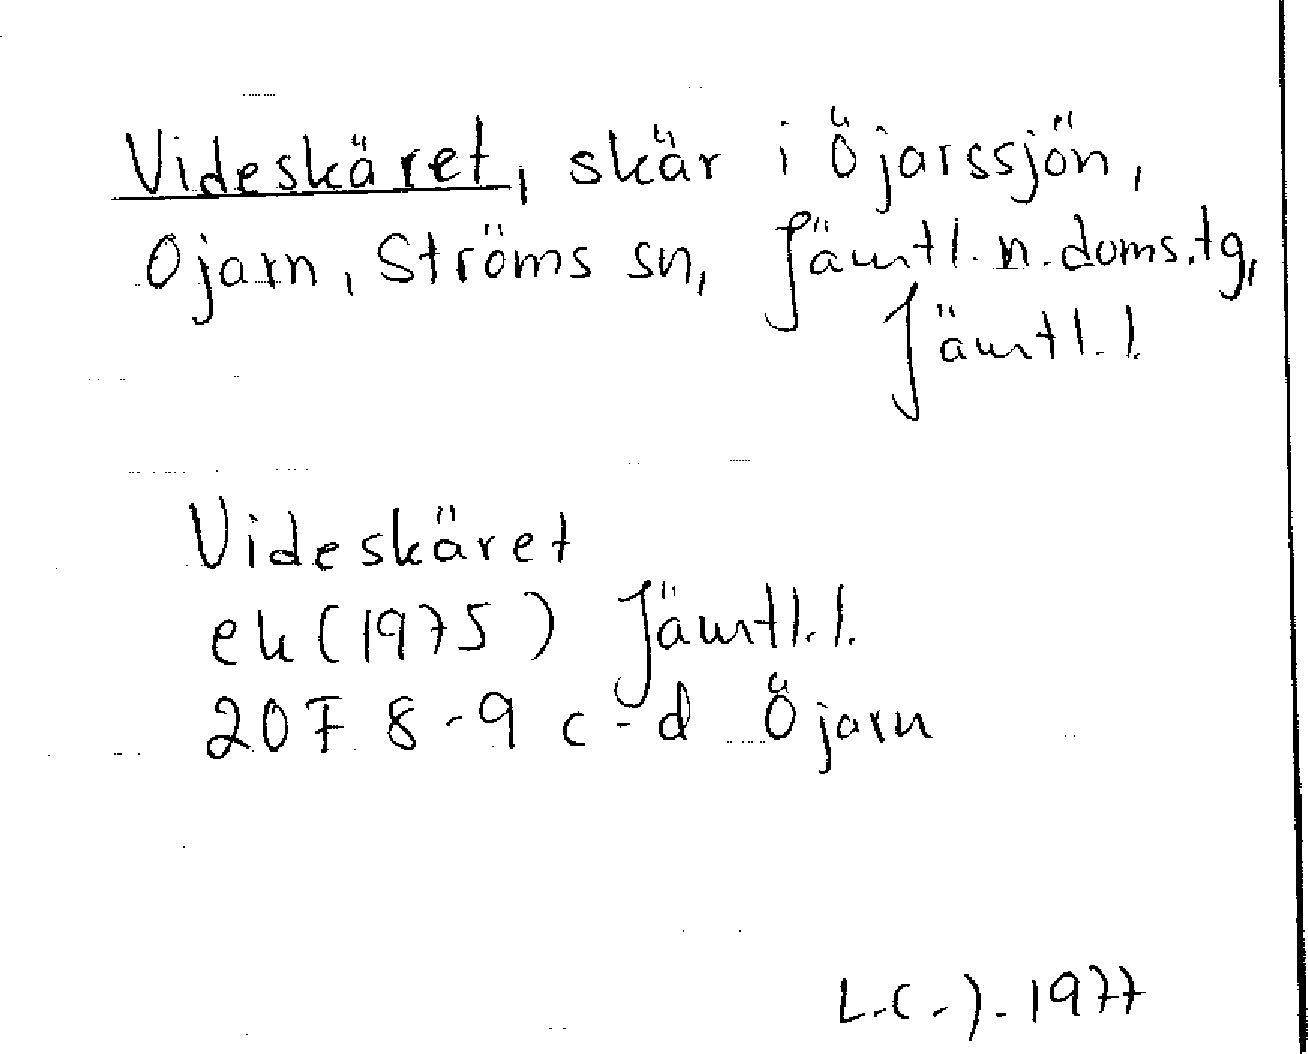 Videskäret, skär i Öjarssjön,
Ojarn, Ströms sn, Jämtl. n. doms.tg,
Jämtl. l.
Videskäret
ek (1975) Jämtl. l.
20F 8-9 c-d Öjarn
L-C-J- 1977